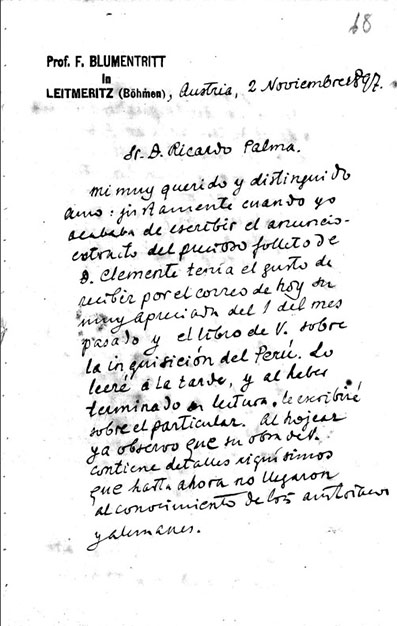 68
Prof. F. BLUMENTRITT
in
LEITMERITZ (Böhmen), Austria, 2 Noviembre 1897.
Sr. D. Ricardo Palma.
Mi muy querido y distinguido
amo: justamente cuando yo
acababa de escribir el anuncio-
estracto del precioso folleto de
D. Clemente tenía el gusto de
recibir por el correo de hoy su
muy apreciada del 1 del mes
pasado y el libro de V. sobre
la inquisición del Perú. Lo
leeré á la tarde, y al haber
terminado la lectura, le escribiré
sobre el particular. Al hojear
ya observo que su obra de V.
contiene detalles riquísimos
que hasta ahora no llegaron
al conocimiento de los
y alemanes.